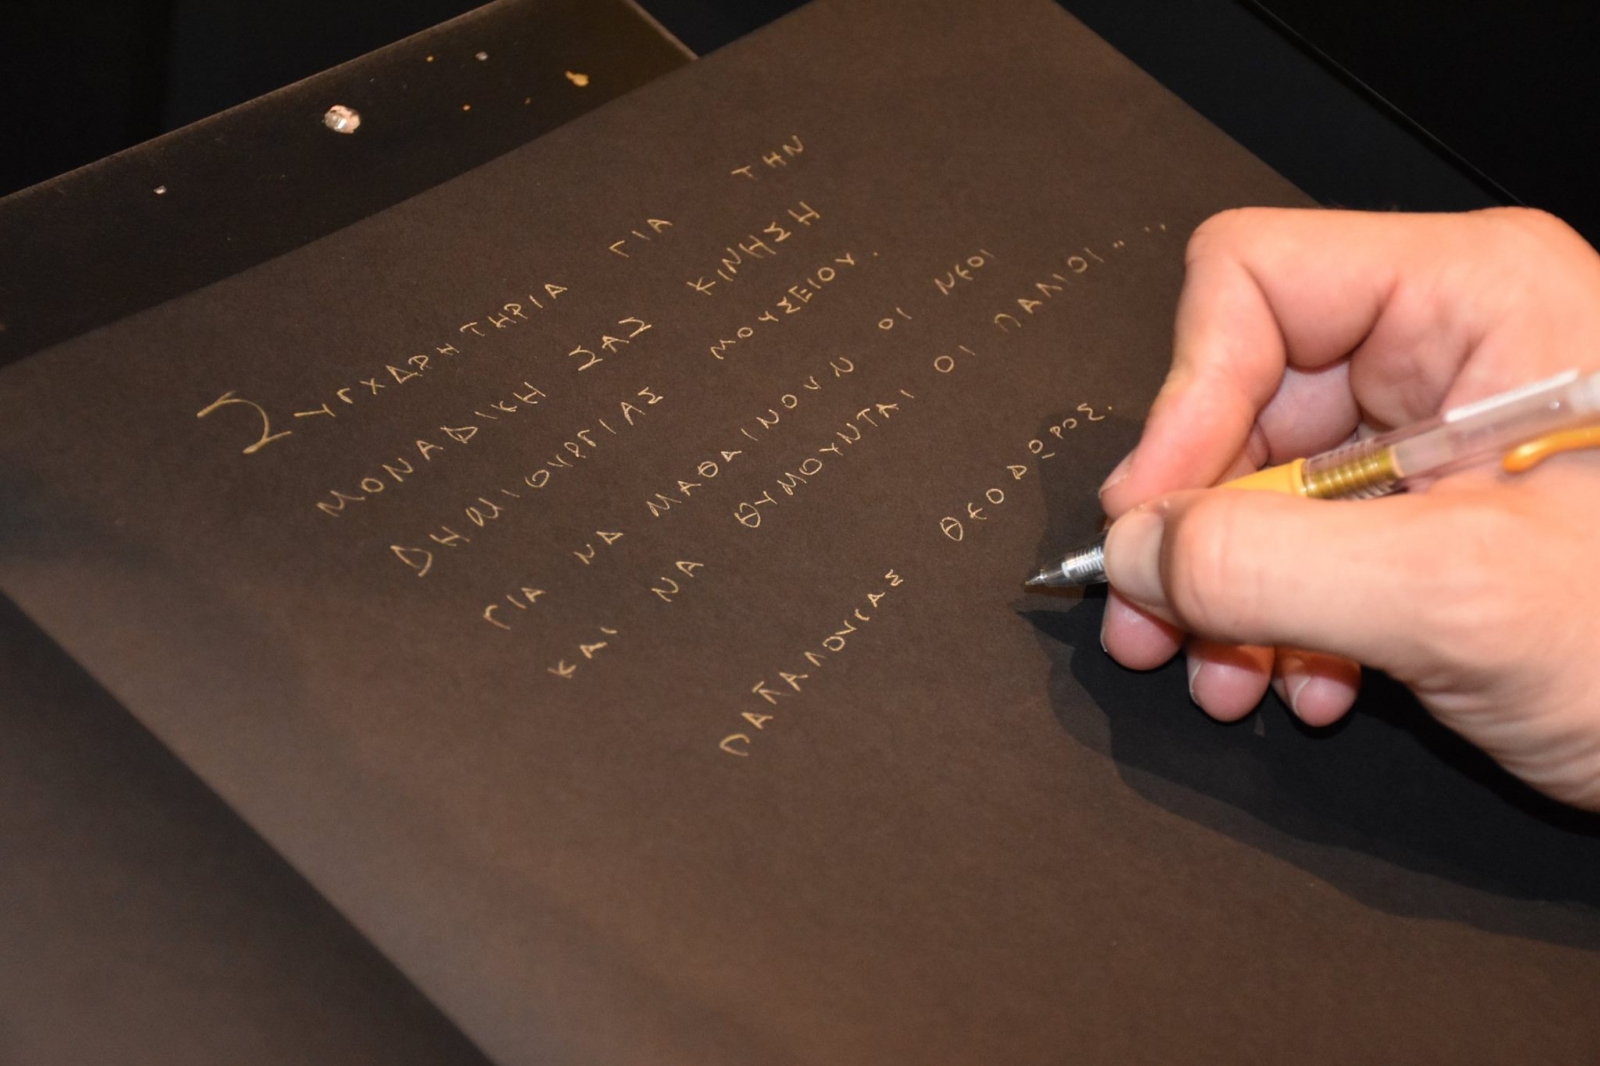 ΣΥΓΧΑΡΗΤΗΡΙΑ ΓΙΑ ΤΗΝ
ΜΟΝΑΔΙΚΗ ΣΑΣ ΚΙΝΗΣΗ
ΔΗΜΙΟΥΡΓΙΑΣ ΜΟΥΣΕΙΟΥ.
ΓΙΑ ΝΑ ΜΑΘΑΙΝΟΥΝ ΟΙ ΝΕΟΙ
ΚΑΙ ΝΑ ΘΥΜΟΥΝΤΑΙ ΟΙ ΠΑΛΙΟΙ....
ΘΕΟΔΩΡΟΣ.